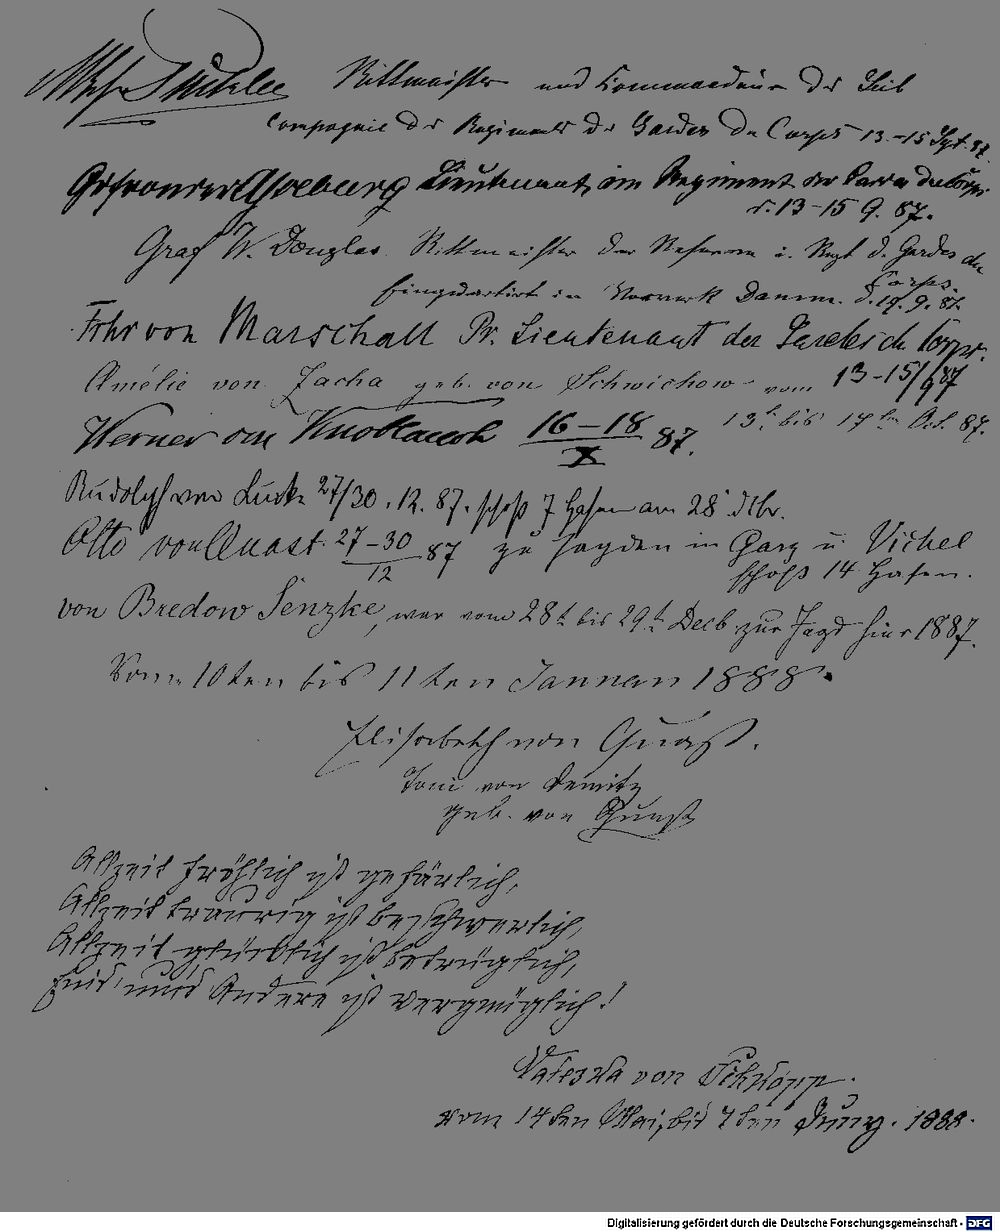 Pückler Rittmeister und Commandeur der Leib
Compagnie des Regiments der Gardes du Corps 13.-15 Spt. 87.
Lieutenant im Regiment der Gardes du Corps
d. 13-15 9. 87.
Graf W. Douglas. Rittmeister der Reserve i. Regt d. Gardes du
Corps.
Einquartiert in Vorwerk Damm. d. 19. 9. 87.
Frhr von Marschall Pr. Lieutenant der Gardes du Corps.
Amélie von Zacha geb. von Schwichow vom 13-15/9 87
13t. bis 17ten Oct. 87.
Werner von Knoblauch 16-18/X 87.
Rudolph von Lucke 27/30. 12. 87. schoß 7 Hasen am 28 dbr.
Otto von Quast. 27-30/12 87 zu Jagden in Garz u. Vichel
schoß 14 Hasen.
von Bredow Senzke, war vom 28t bis 29t Decb zur Jagd hier 1887.
Vom 10ten bis 11ten Januar 1888.
Elisabeth von Quast.
Toni von Dewitz
geb. von Quast
Allzeit fröhlich ist gefärlich,
Allzeit traurig ist beschwerlich,
Allzeit glücklich ist betrüglich,
Eins und Andere ist vergnüglich!
Valeska von Schkopp.
vom 14ten Mai, bis 7ten Juny. 1888.
Digitalisierung gefördert durch die Deutsche Forschungsgemeinschaft - DFG